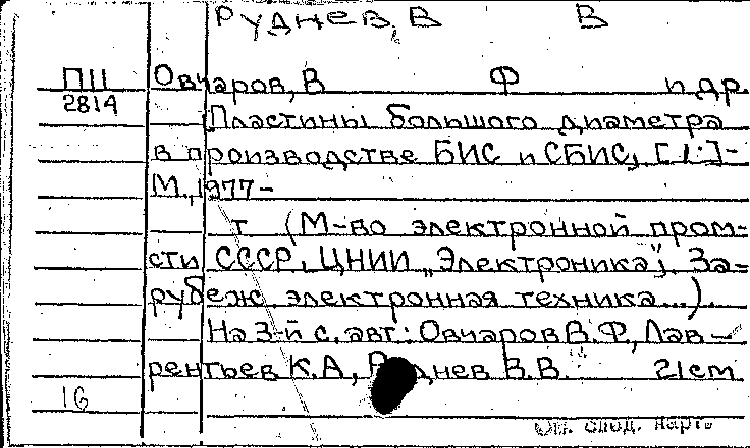 Руднев, В В
ПП Овчаров, В Ф и др.
2814
Пластины большого диаметра
в производстве БИС и СБИС, [1:]-
М., 1977-
т (М-во электронной пром-
сти СССР, ЦНИИ „Электроника"). За-
рубеж. электронная техника...).
На 3-й с. авт.: Овчаров В.Ф., Лав-
рентьев К.А., Руднев В.В. 21см.
16